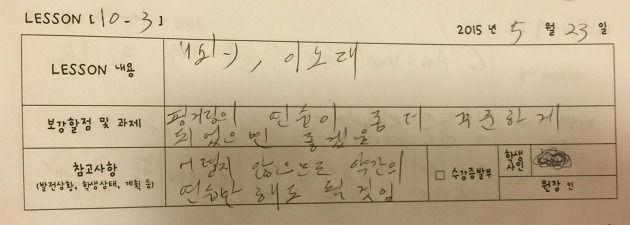 LESSON [ 10 - 3 ]
2015 년 5 월 23 일
LESSON 내용
, 이노대
보강할점 및 과제
핑거링의 연습이 좀 더 꾸준하게
되었으면 좋겠음.
참고사항
(발전상황, 학생상태, 계획 등)
어렵지 않으므로 약간의
연습만 해도 될 것임
□ 수강증발부
학생
사인
원장 인